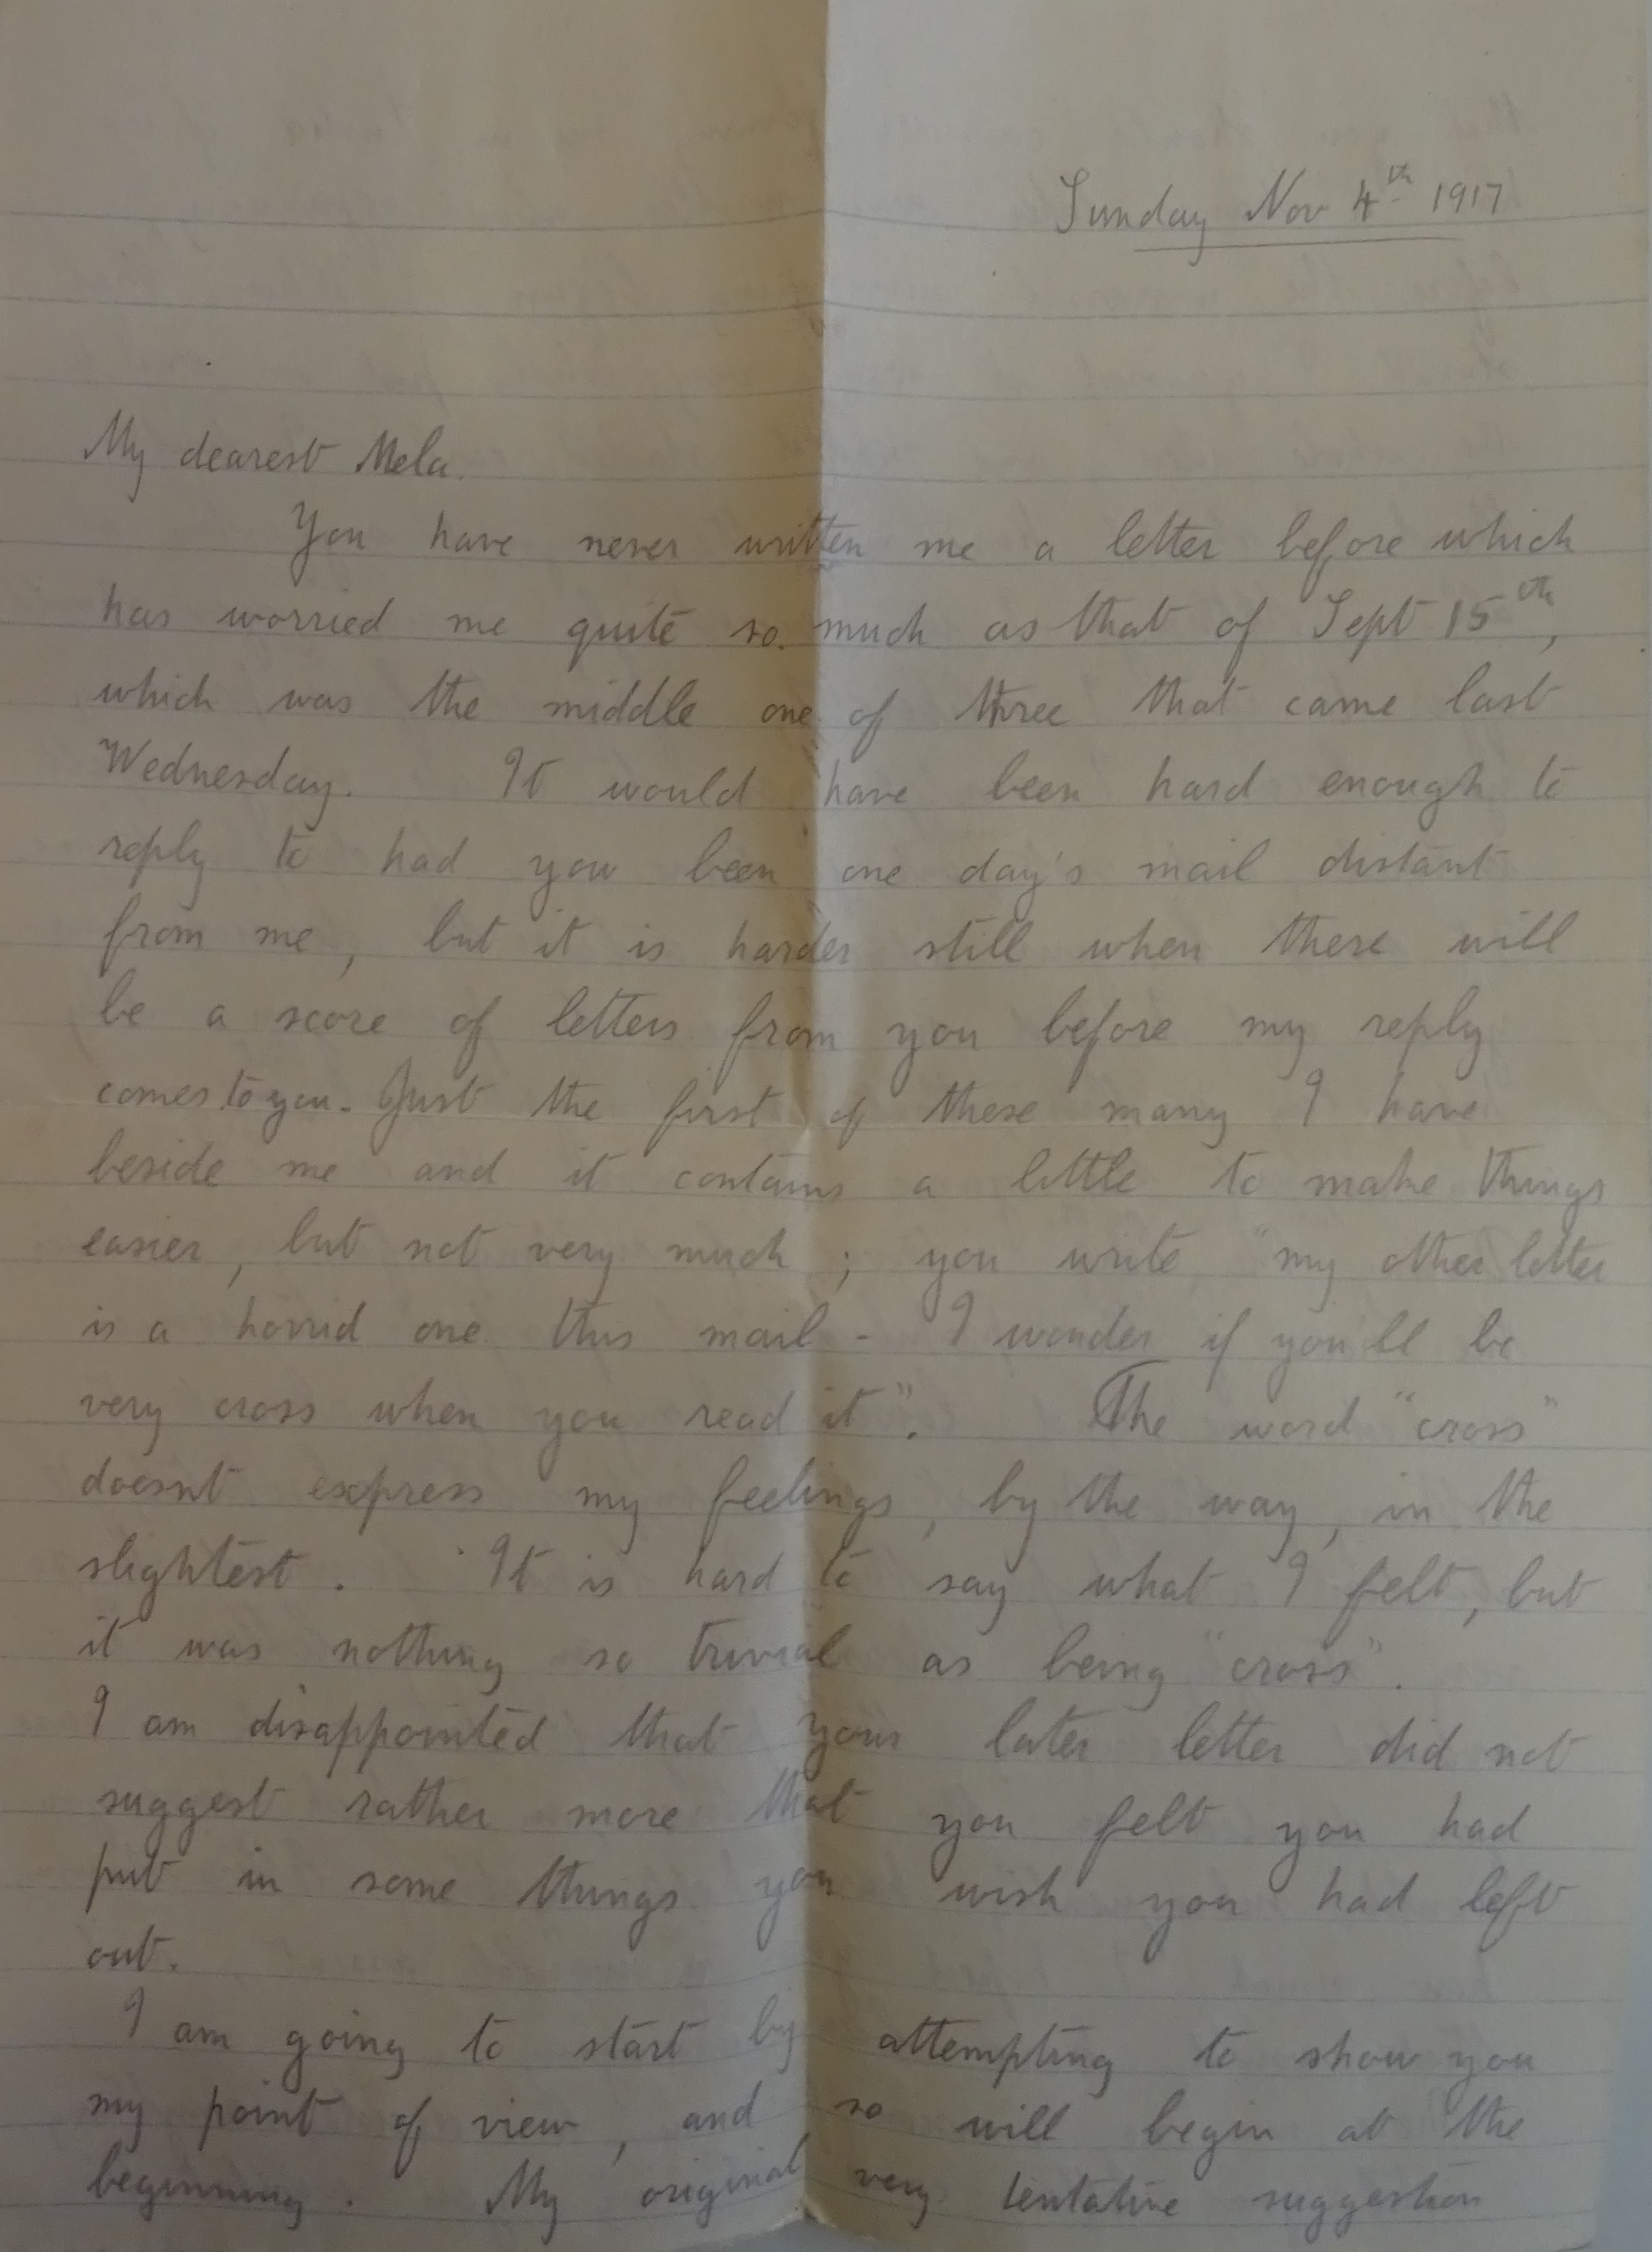 Sunday Nov 4th 1917
My dearest Mela.
You have never written me a letter before which
has worried me quite so much as that of Sept 15th,
which was the middle one of three that came last
Wednesday. It would have been hard enough to
reply to had you been one day's mail distant
from me, but it is harder still when there will
be a score of letters from you before my reply
comes to you. Just the first of these many I have
beside me and it contains a little to make things
easier, but not very much; you write "my other letter
is a horrid one this mail - I wonder if you'll be
very cross when you read it". The word "cross"
doesnt express my feelings, by the way, in the
slightest. It is hard to say what I felt, but
it was nothing so trivial as being "cross".
I am disappointed that your later letter did not
suggest rather more that you felt you had
put in some things you wish you had left
out.
I am going to start by attempting to show you
my point of view, and so will begin at the
beginning. My original very tentative suggestion